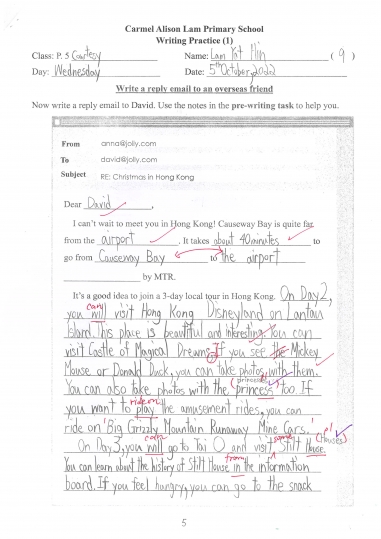 Carmel Alison Lam Primary School
Writing Practice (1)
Class: P. 5 Courtesy Name: Lam Yat Hin ( 9 )
Day: Wednesday Date: 5th October, 2022
Write a reply email to an overseas friend
Now write a reply email to David. Use the notes in the pre-writing task to help you.
From anna@jolly.com
To david@jolly.com
Subject RE: Christmas in Hong Kong
Dear David,
I can't wait to meet you in Hong Kong! Causeway Bay is quite far
from the airport. It takes about 40 minutes to
go from Causeway Bay to the airport
by MTR.
It's a good idea to join a 3-day local tour in Hong Kong. On Day 2,
can
you will visit Hong Kong Disneyland on Lantau
Island. This place is beautiful and interesting. You can
visit Castle of Magical Dreams. If you see the Mickey
Mouse or Donald Duck, you can take photos with them.
princesses
You can also take photos with the princess too. If
ride on
you want to play the amusement rides, you can
ride on 'Big Grizzly Mountain Runaway Mine Cars.'
can some pl
On Day 3, you will go to Tai O and visit Stilt House.
(Houses)
from
You can learn about the history of Stilt House in the information
board. If you feel hungry, you can go to the snack
5